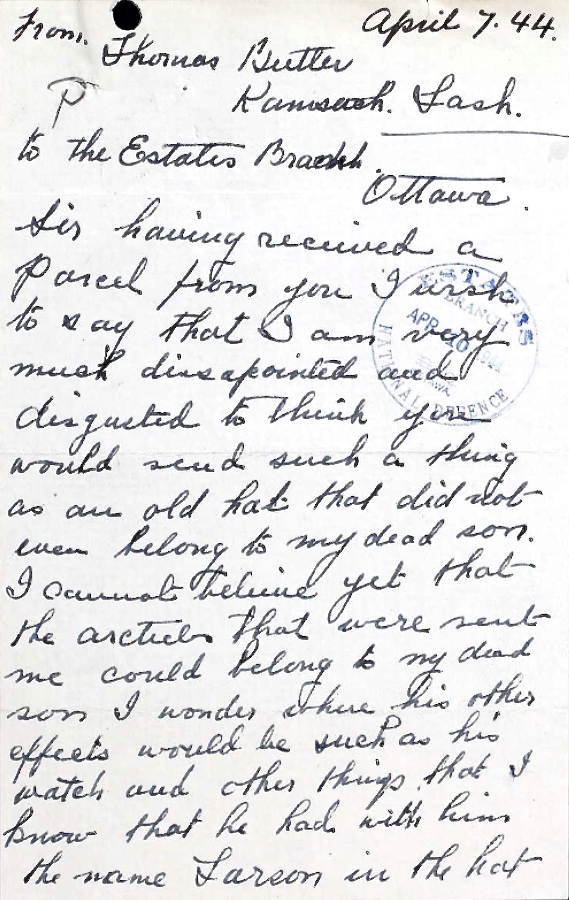 From. April 7. 44.
Thomas Butler
P Kamsack. Sask.
to the Estates Branch.
Ottawa.
Sir having received a
Parcel from you I wish
to say that I am very
much dissapointed and
disgusted to think you
would send such a thing
as an old hat that did not
even belong to my dead son.
I cannot believe yet that
the arcticles that were sent
me could belong to my dead
son I wonder where his other
effects would be such as his
watch and other things that I
know that he had with him
the name Larson in the hat
ESTATES
BRANCH
APR 10 1944
NATIONAL DEFENCE